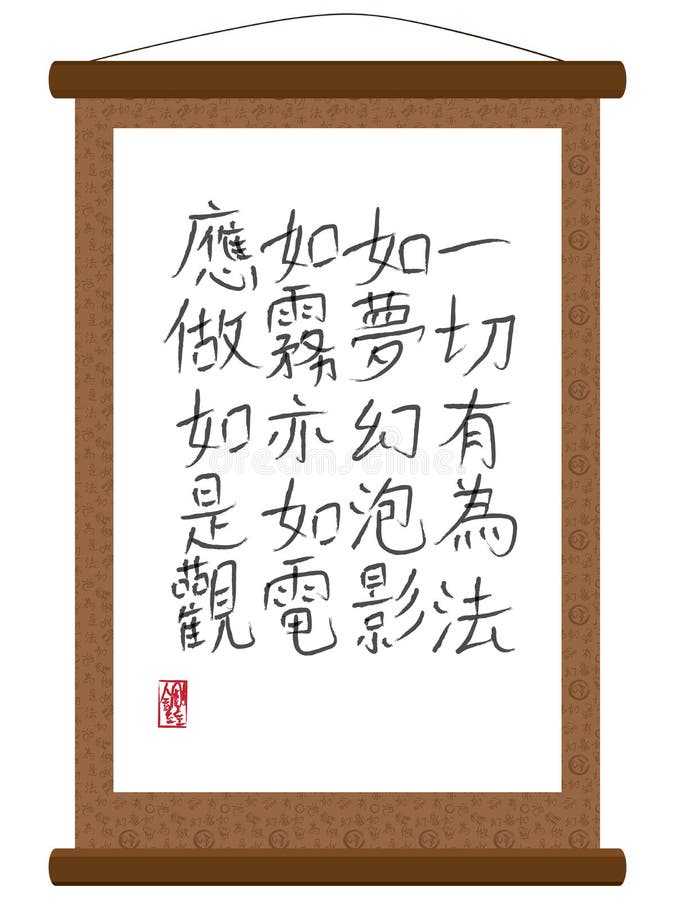 一切有為法
如夢幻泡影
如霧亦如電
應做如是觀
dreamstime